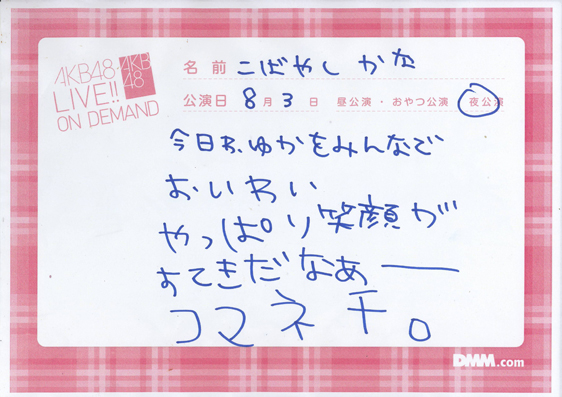 AKB48
LIVE!!
ON DEMAND
AKB
48
名前 こばやし かな
公演日 8月3日 昼公演・おやつ公演 夜公演
今日わ、ゆかをみんなで
おいわい
やっぱり笑顔が
すてきだなあー
コマネチ。
DMM.com